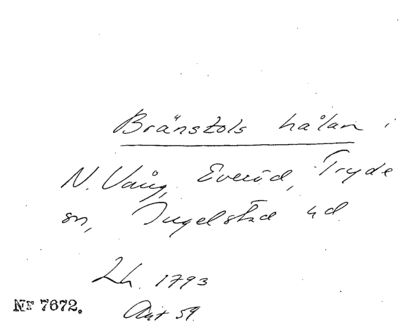 Bränstols hålan i
N. Vång, Everöd, Tryde
sn, Ingelstad hd.
Lh. 1793
Akt 59.
Nr 7672.